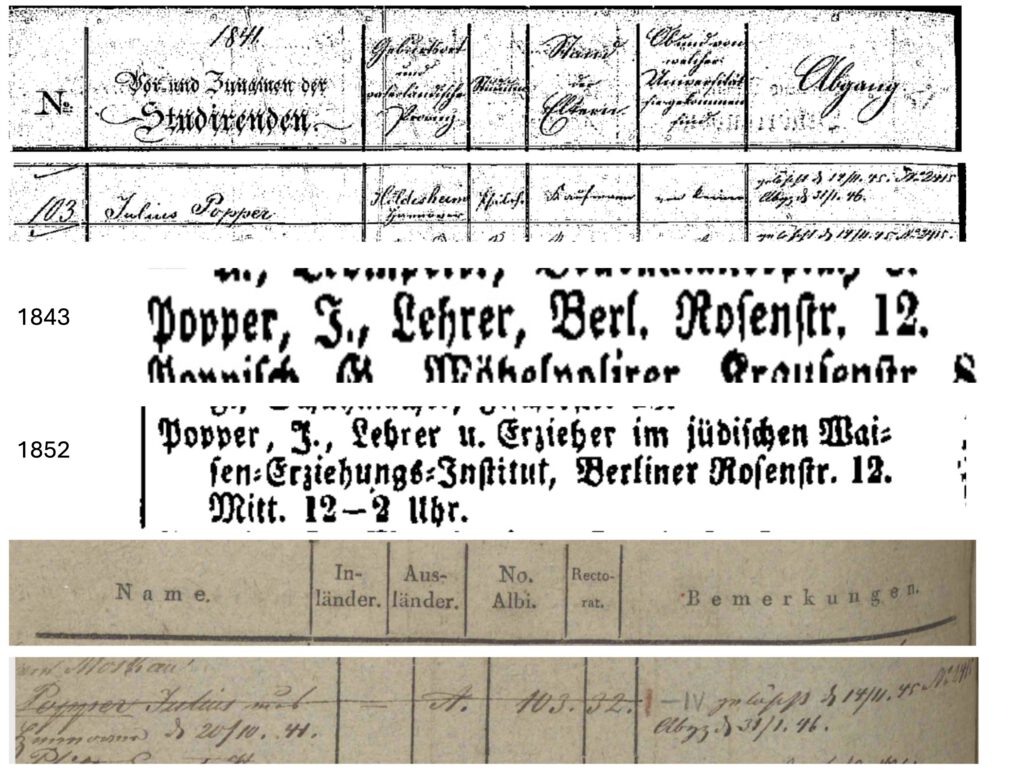 1841
No.
Vor- und Zunamen der
Studirenden.
Geburtsort
und
vaterländische
Provinz
Studium
Stand
der
Eltern
Ob und von
welcher
Universität
hergekommen
sind
Abgang
103
Julius Popper
Hildesheim
Hannover
Philos.
Kaufmann
von keiner
gelöscht d 14/11. 45. No 2415
Abgz d 31/1. 46.
gelöscht d 14/11. 45. No 2415.
1843
Popper, J., Lehrer, Berl. Roſenſtr. 12.
1852
Popper, J., Lehrer u. Erzieher im jüdiſchen Wai⸗
ſen⸗Erziehungs⸗Inſtitut, Berliner Roſenſtr. 12.
Mitt. 12—2 Uhr.
Name.
In-
länder.
Aus-
länder.
No.
Albi.
Recto-
rat.
Bemerkungen.
Moskau
Popper Julius aus — A. 103. 32. I – IV gelöscht d 14/11. 45
Hannover d 20/10. 41.
Abgz d 31/1. 46.